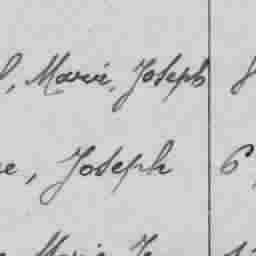 , Marie, Joseph
, Joseph 6
Marie Jo